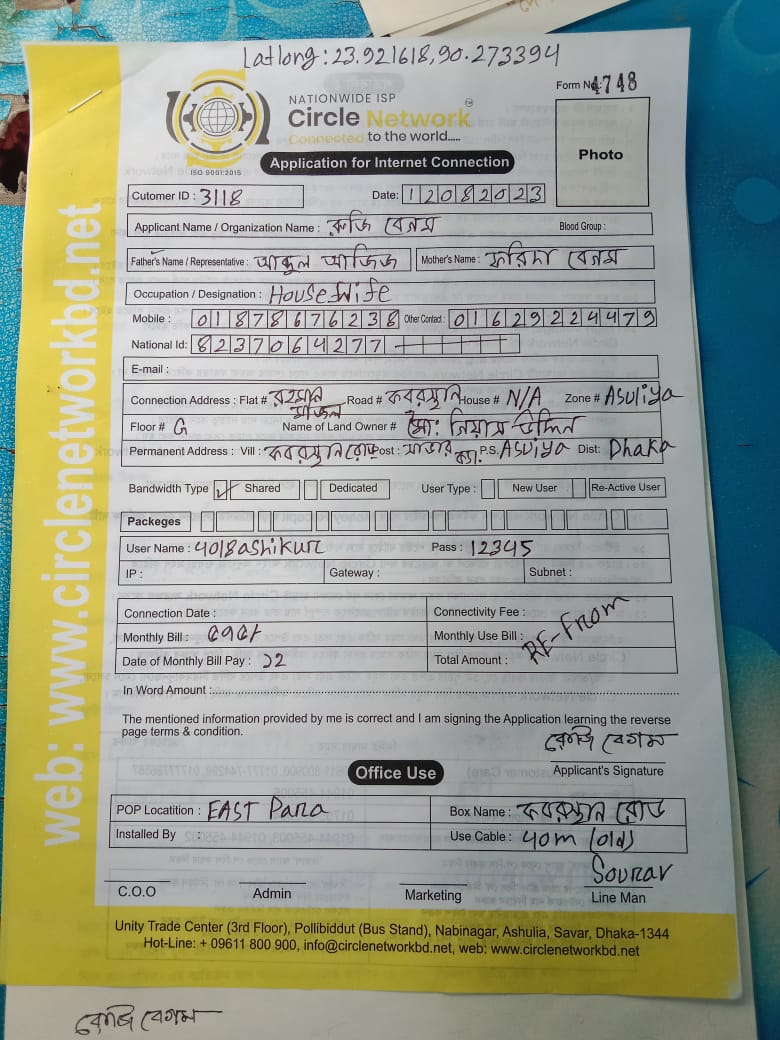 Latlong: 23.921618,90.273394
Form No 4748
NATIONWIDE ISP
Circle Network
Connected to the world.....
ISO 9001:2015
Application for Internet Connection
Photo
Cutomer ID : 3118 Date: 12082023
Applicant Name / Organization Name : রুজি বেগম Blood Group :
Father's Name / Representative : আব্দুল আজিজ Mother's Name : ফরিদা বেগম
Occupation / Designation : Housewife
Mobile : 01878676238 Other Contact : 01629224479
National Id: 8237064277
E-mail :
Connection Address : Flat # রহমান মঞ্জিল Road # কবরস্থান House # N/A Zone # Asuliya
Floor # G Name of Land Owner # মো: নিয়াম উদ্দিন
Permanent Address : Vill : কবরস্থান রোড Post : সাভার ক্যা: P.S. Asuliya Dist: Dhaka
Bandwidth Type Shared Dedicated User Type : New User Re-Active User
Packeges
User Name : 4018ashikurc Pass : 12345
IP : Gateway : Subnet :
Connection Date : Connectivity Fee :
Monthly Bill : Monthly Use Bill :
Date of Monthly Bill Pay : ১২ Total Amount :
RE-From
In Word Amount :
The mentioned information provided by me is correct and I am signing the Application learning the reverse
page terms & condition.
রোজি বেগম
Applicant's Signature
Office Use
POP Locatition : EAST Para Box Name : কবরস্থান রোড
Installed By : Use Cable : 40m (old)
Sourav
C.O.O Admin Marketing Line Man
Unity Trade Center (3rd Floor), Pollibiddut (Bus Stand), Nabinagar, Ashulia, Savar, Dhaka-1344
Hot-Line: + 09611 800 900, info@circlenetworkbd.net, web: www.circlenetworkbd.net
web: www.circlenetworkbd.net
রোজি বেগম